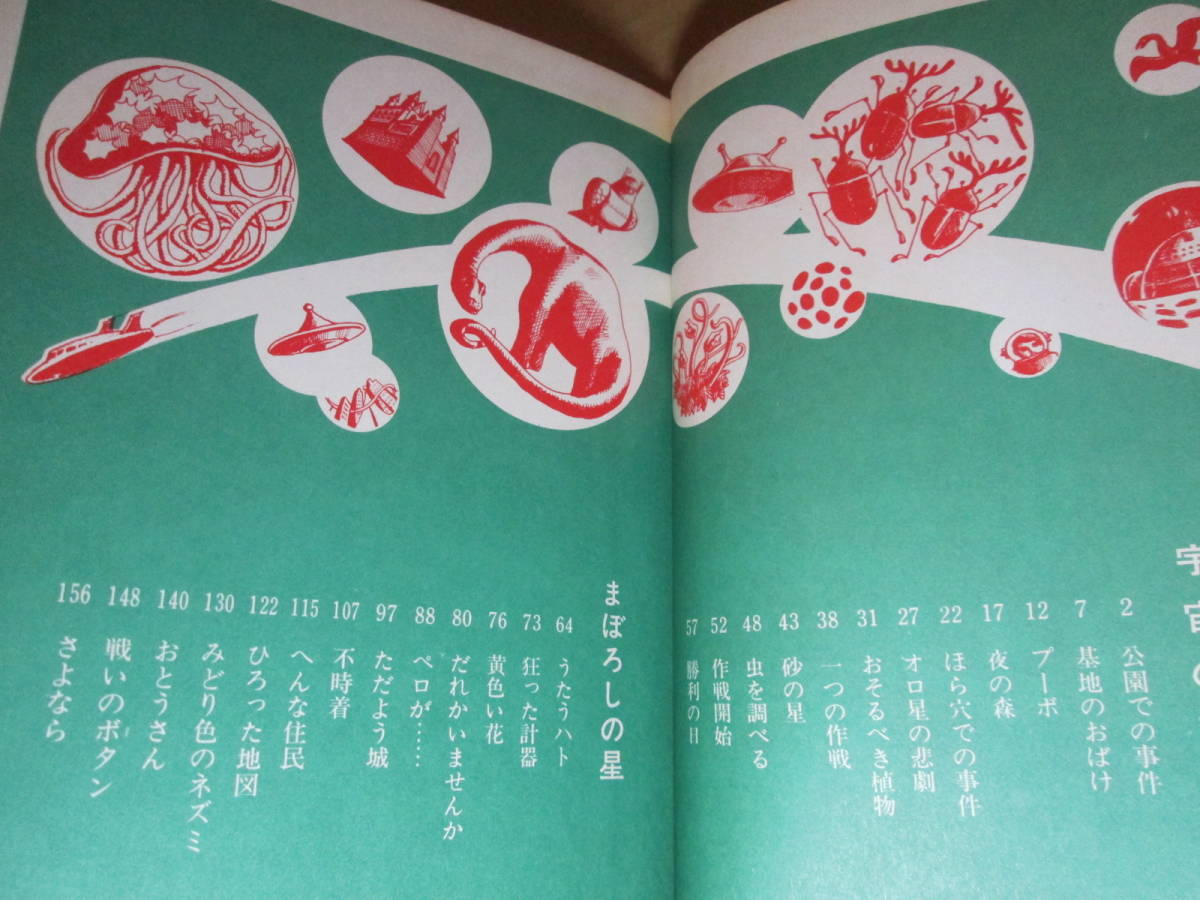 宇宙の
公園での事件 2
基地のおばけ 7
プーボ 12
夜の森 17
ほら穴での事件 22
オロ星の悲劇 27
おそるべき植物 31
一つの作戦 38
砂の星 43
虫を調べる 48
作戦開始 52
勝利の日 57
まぼろしの星
うたうハト 64
狂った計器 73
黄色い花 76
だれかいませんか 80
ペロが…… 88
ただよう城 97
不時着 107
へんな住民 115
ひろった地図 122
みどり色のネズミ 130
おとうさん 140
戦いのボタン 148
さよなら 156